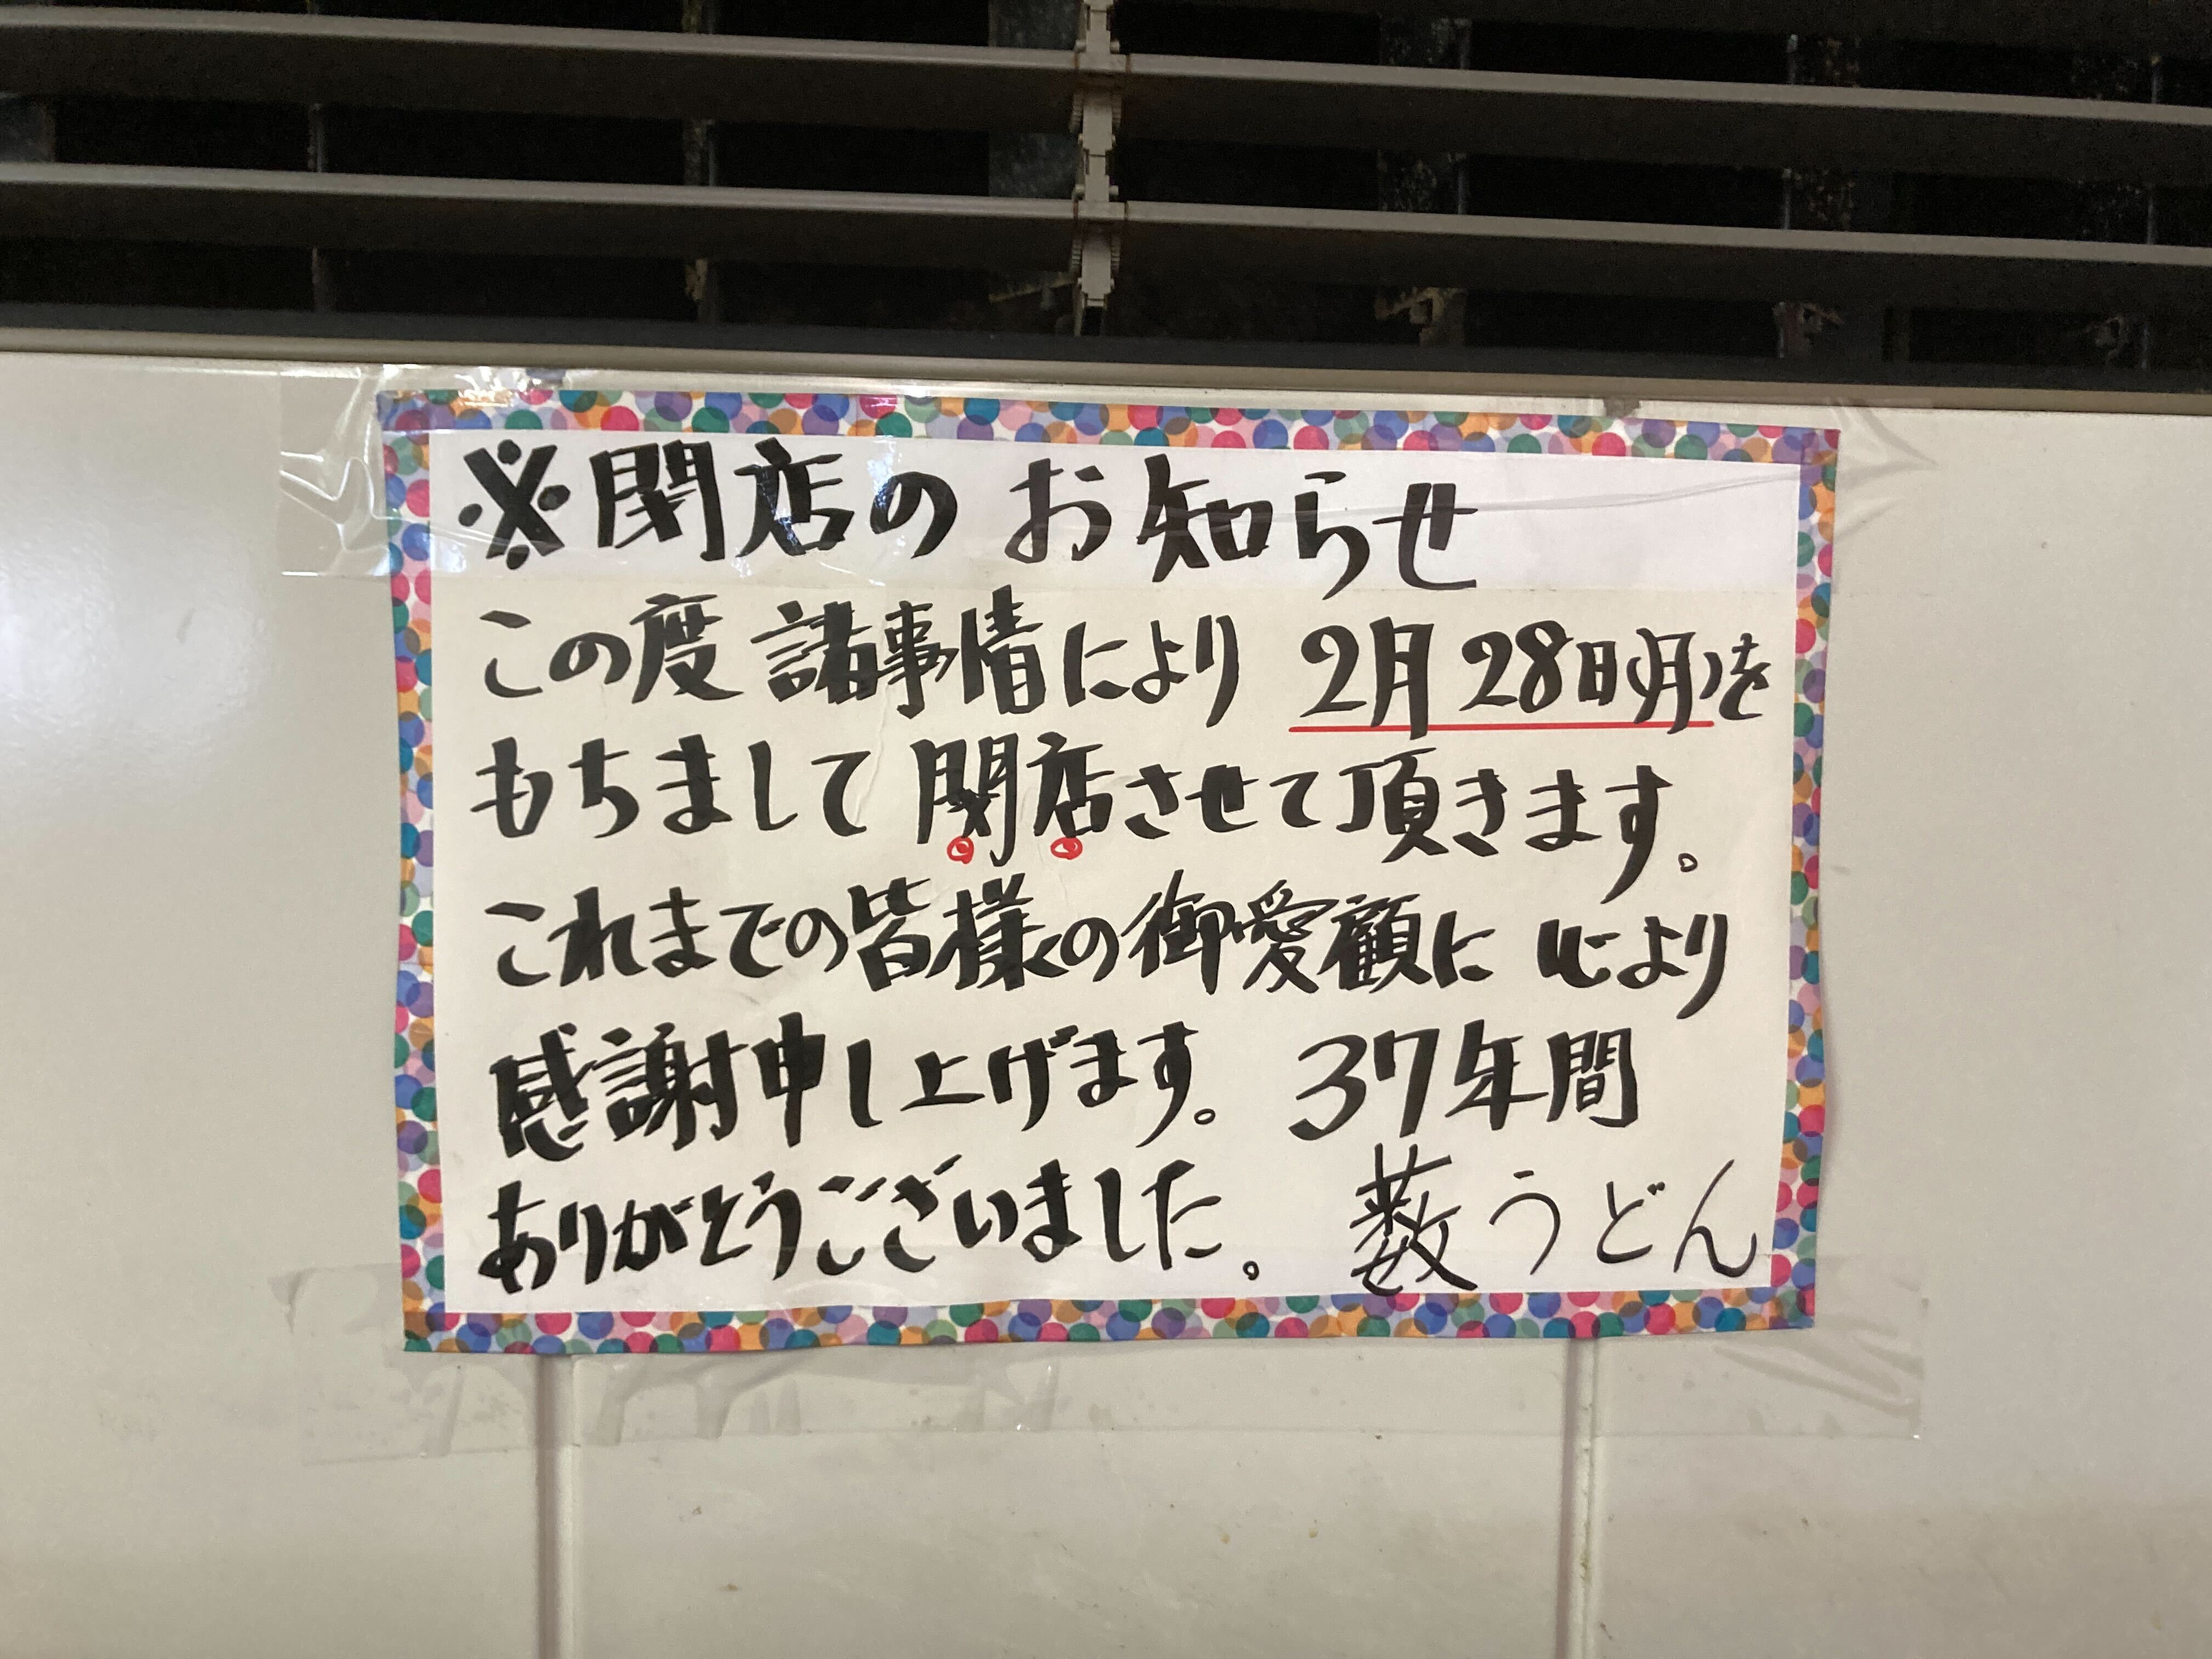 ※閉店のお知らせ
この度諸事情により 2月28日(月)を
もちまして閉店させて頂きます。
これまでの皆様の御愛顧に心より
感謝申し上げます。37年間
ありがとうございました。 薮うどん